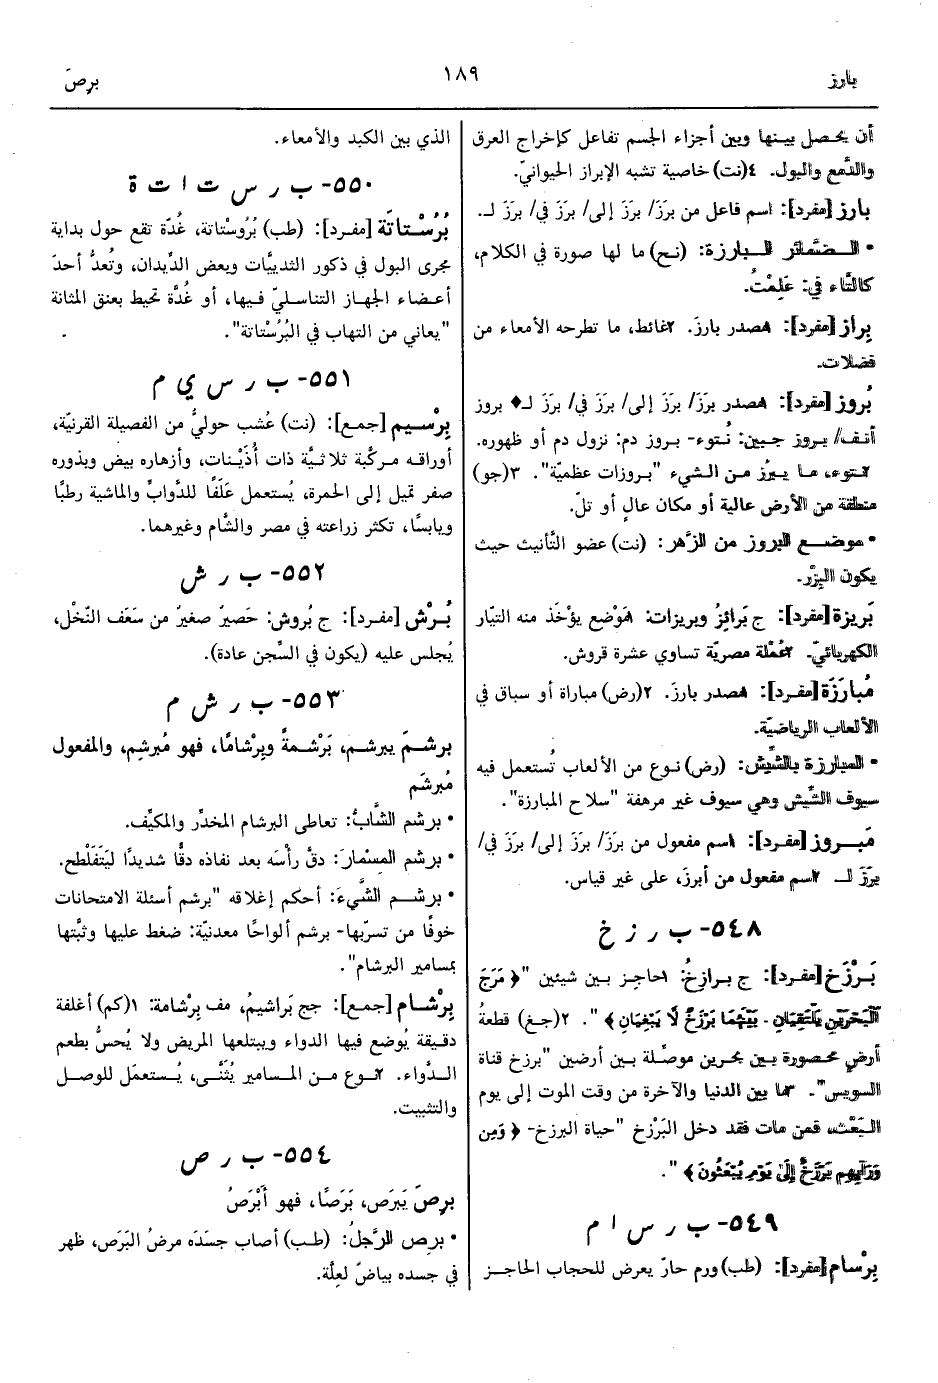 بارز
١٨٩
برِصَ
أن يحصل بينها وبين أجزاء الجسم تفاعل كإخراج العرق
والدَّمع والبول. ٤(نت) خاصية تشبه الإبراز الحيوانيّ.
بارز [مفرد]: اسم فاعل من برَزَ/ برَزَ إلى/ برَزَ في/ برَزَ لـ.
• الضَّمائر البارزة: (نح) ما لها صورة في الكلام،
كالتَّاء في: عَلِمْتُ.
بِراز [مفرد]: ١مصدر بارزَ. ٢غائط، ما تطرحه الأمعاء من
فضلات.
بُروز [مفرد]: ١مصدر برَزَ/ برَزَ إلى/ برَزَ في/ برَزَ لـ♦ بروز
أنف/ بروز جبين: نُتوء- بروز دم: نزول دم أو ظهوره.
٢نتوء، ما يبرُز من الشيء "بروزات عظميّة". ٣(جو)
منطقة من الأرض عالية أو مكان عالٍ أو تلّ.
• موضع البروز من الزَّهر: (نت) عضو التَّأنيث حيث
يكون البِزْر.
بَريزة [مفرد]: ج بَرائِزُ وبريزات: ١مَوْضع يؤْخَذ منه التيّار
الكهربائيّ. ٢عُمْلة مصريّة تساوي عشرة قروش.
مُبارَزَة [مفرد]: ١مصدر بارزَ. ٢(رض) مباراة أو سباق في
الألعاب الرياضيّة.
• المبارزة بالشّيش: (رض) نوع من الألعاب تُستعمل فيه
سيوف الشِّيش وهي سيوف غير مرهفة "سلاح المبارزة".
مَبروز [مفرد]: ١اسم مفعول من برَزَ/ برَزَ إلى/ برَزَ في/
برَزَ لـ ٢اسم مفعول من أبرزَ، على غير قياس.
٥٤٨- ب ر ز خ
بَرْزَخ [مفرد]: ج برازخُ: ١حاجز بين شيئين "﴿ مَرَجَ
الْبَحْرَيْنِ يَلْتَقِيَانِ. بَيْنَهُمَا بَرْزَخٌ لَا يَبْغِيَانِ ﴾". ٢(جغ) قطعةُ
أرضٍ محصورة بين بحرين موصِّلة بين أرضين "برزخ قناة
السويس". ٣ما بين الدنيا والآخرة من وقت الموت إلى يوم
البَعْث، فمن مات فقد دخل البَرْزخ "حياة البرزخ- ﴿ وَمِن
وَرَائِهِم بَرْزَخٌ إِلَىٰ يَوْمِ يُبْعَثُونَ ﴾".
٥٤٩- ب ر س ا م
بِرْسام [مفرد]: (طب) ورم حارّ يعرض للحجاب الحاجز
الذي بين الكبد والأمعاء.
٥٥٠- ب ر س ت ا ت ة
بُرُسْتاتَة [مفرد]: (طب) بُرُوسْتاتة، غُدَّة تقع حول بداية
مجرى البول في ذكور الثدييَّات وبعض الدِّيدان، وتُعدُّ أحدَ
أعضاء الجهاز التناسليّ فيها، أو غُدَّة تحيط بعنق المثانة
"يعاني من التهاب في البُرُسْتاتة".
٥٥١- ب ر س ي م
بِرْسيم [جمع]: (نت) عُشب حوليّ من الفصيلة القرنيّة،
أوراقه مركّبة ثلاثيَّة ذات أُذَيْنات، وأزهاره بيض وبذوره
صفر تميل إلى الحمرة، يُستعمل عَلَفًا للدَّوابِّ والماشية رطبًا
ويابسًا، تكثر زراعته في مصر والشَّام وغيرهما.
٥٥٢- ب ر ش
بُرْش [مفرد]: ج بُروش: حَصيرٌ صغيرٌ من سَعَف النّخْل،
يُجلس عليه (يكون في السِّجن عادة).
٥٥٣- ب ر ش م
برشمَ يبرشم، بَرْشمةً وبِرْشامًا، فهو مُبرشِم، والمفعول
مُبرشَم
• برشم الشَّابُّ: تعاطى البرشام المخدِّر والمكيِّف.
• برشم المِسْمارَ: دقّ رأْسَه بعد نفاذه دقًّا شديدًا لِيَتَفَلْطح.
• برشم الشَّيءَ: أحكم إغلاقه "برشم أسئلة الامتحانات
خوفًا من تسرّبها- برشم ألواحًا معدنيّة: ضغط عليها وثبَّتها
بمسامير البرشام".
بِرْشام [جمع]: جج بَراشيمُ، مف بِرْشامة: ١(كم) أغلفة
دقيقة يُوضع فيها الدواء ويبتلعها المريض ولا يُحسّ بطعم
الدَّواء. ٢نوع من المسامير يُثَنَّى، يُستعمَل للوصل
والتثبيت.
٥٥٤- ب ر ص
برِصَ يَبرَص، بَرَصًا، فهو أَبْرَصُ
• برِص الرَّجلُ: (طب) أصاب جسَدَه مرضُ البَرَص، ظهر
في جسده بياضٌ لعِلَّة.